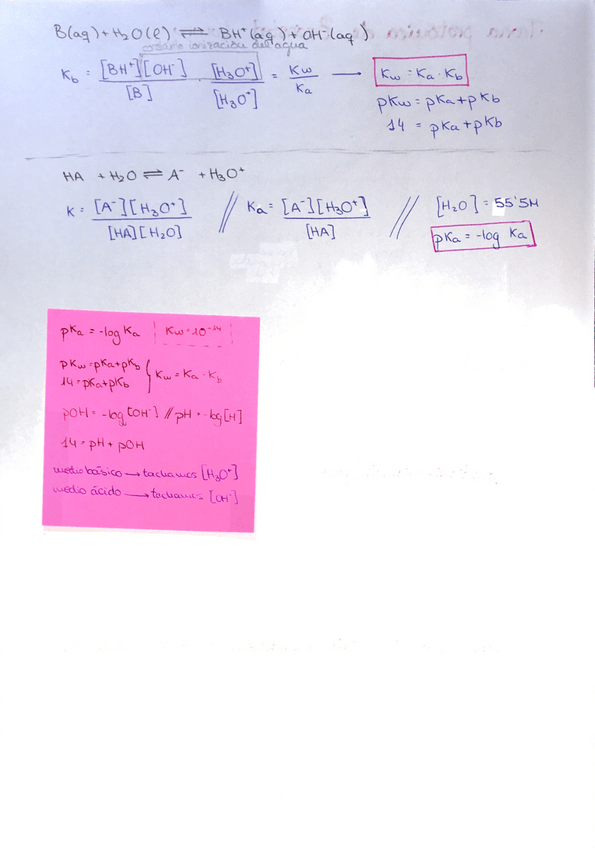 B(aq) + H₂O(l) ⇌ BH⁺(aq) + OH⁻(aq)
ionización del agua
Kb = [BH⁺][OH⁻] / [B] · [H₃O⁺] / [H₃O⁺] = Kw / Ka → Kw = Ka · Kb
pKw = pKa + pKb
14 = pKa + pKb
HA + H₂O ⇌ A⁻ + H₃O⁺
K = [A⁻][H₃O⁺] / [HA][H₂O] // Ka = [A⁻][H₃O⁺] / [HA] // [H₂O] = 55'5M
pKa = -log Ka
pKa = -log Ka | Kw = 10⁻¹⁴
pKw = pKa + pKb
14 = pKa + pKb { Kw = Ka · Kb
pOH = -log[OH⁻] // pH = -log[H]
14 = pH + pOH
medio básico → tachamos [H₃O⁺]
medio ácido → tachamos [OH⁻]